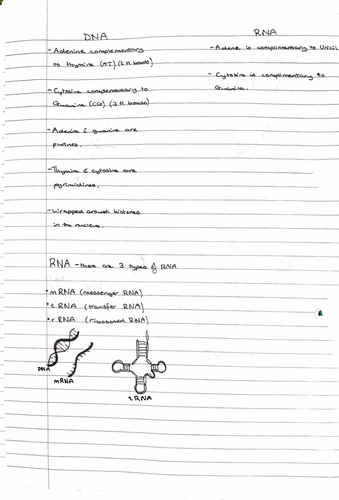 DNA
- Adenine complementary
to thymine (AT) (2 H bonds)
- Cytosine complementary to
Guanine (CG) (3 H bonds)
- Adenine & guanine are
purines.
- Thymine & cytosine are
pyrimidines.
- Wrapped around histones
in the nucleus.
RNA
- Adenine is complimentary to Uracil
- Cytosine is complimentary to
Guanine.
RNA - there are 3 types of RNA
• mRNA (messenger RNA)
• tRNA (transfer RNA)
• rRNA (ribosomal RNA)
DNA
mRNA
tRNA